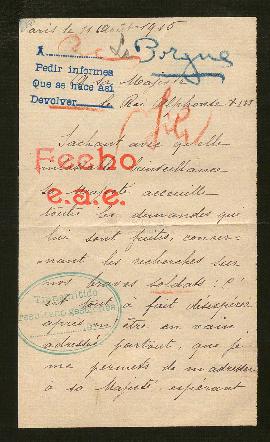 Paris le 11 Août 1915
Borgne
A
Pedir informes
Que se hace Así
Devolver
A Sa Majesté
le Roi Alphonse XIII
Sachant avec quelle
bienveillance
Sa Majesté accueille
toutes les demandes qui
lui sont faites, concer-
nant les recherches sur
nos braves soldats : 
Fecho
e.a.e.
tout à fait désespérée
après m'être en vain
adressée partout, que je
me permets de m'adresser
à sa Majesté espérant
Transmitido